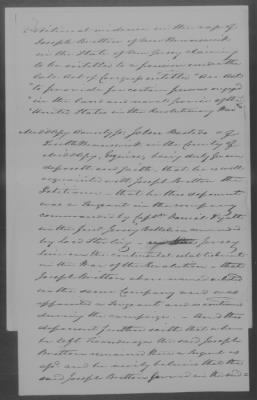 Additional evidence in the case of
Joseph Bretton of New Brunswick
in the State of New Jersey claiming
to be entitled to a pension under the
late Act of Congress entitled "An Act
"to provide for certain persons engaged
"in the land and naval service of the
"United States in the Revolutionary War"
Middlesex County Ss. John Bastedo of
South Brunswick in the County of
Middlesex, Esquire, being duly sworn
deposeth and saith, that he is well
acquainted with Joseph Bretton the
Petitioner – that he this deponent
was a Sergeant in the company
commanded by Capt. Daniel Piatt
in the first Jersey Battalion commanded
by Lord Sterling – Jersey
line on the continental establishment
in the War of the Revolution – that
Joseph Bretton above named
in the same Company and was
appointed a Sergeant and continued
during the campaign. – And this
deponent further saith that when
he left Ticonderoga the said Joseph
Bretton remained there a Sergeant as
afsd. and he verily believes that the
said Joseph Bretton served in the said